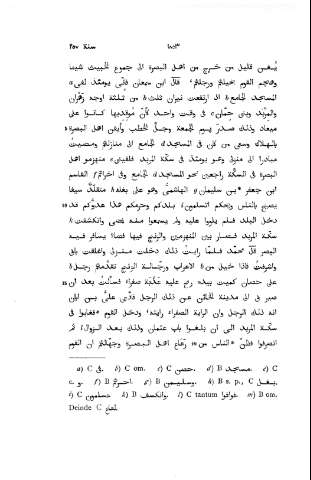 سنة ٢٥٧ ١٨٥٣
يُبغْن قليل من خرج من اهل البصرة الى جموع الخبيث شيئا
وهجم القوم بخيلهم ورجلهم قال ابن سمعان فانّى يومئذ لفى
المسجد الجامع اذ ارتفعت نيران ثلث من ثلثة اوجه زهران
والمربد وبنى حمّان فى وقت واحد كأنّ موقديها كانوا على
ميعاد وذلك صدر يوم الجمعة وجلّ الخطب وأيقن اهل البصرة ٥
بالهلاك وسعى من كان فى المسجد الجامع الى منازلهم ومضيت
مبادرا الى منزلى وهو يومئذ فى سكّة المربد فلقينى منهزمو اهل
البصرة فى السكّة راجعين نحو المسجد الجامع وفى اخراهم القاسم
ابن جعفر بن سليمان الهاشمى وهو على بغل متقلّد سيفا
يصيح بالناس ويحكم اتسلمون بلدكم وحرمكم هذا عدوّكم قد ١٠
دخل البلد فلم يلووا عليه ولم يسمعوا منه فمضى وانكشفت
سكّة المربد فصار بين المنهزمين والزنج فيها فضاء يسافر فيه
البصر قال محمّد فلمّا رايت ذلك دخلت منزلى واغلقت بابى
واشرفت فاذا خيل من الاعراب ورجّالة الزنج تقدّمهم رجل
على حصان كميت بيده رمح عليه عذبة صفراء فسألت بعد ان ١٥
صير بى الى مدينة الخائن عن ذلك الرجل فادّعى علىّ بن ابان
انه ذلك الرجل وان الراية الصفراء رايته ودخل القوم فغابوا فى
سكّة المربد الى ان بلغوا باب عثمان وذلك بعد الزوال ثم
انصرفوا فظنّ الناس من رعاع اهل البصرة وجهّالهم ان القوم
a) C فى. b) C om. c) C حصن. d) B مسجد. e) C
و. f) B احرهم. g) B وسليمن. h) B s. p., C بنعل.
i) C تسلمون. k) B وانكسف. l) C tantum فوافوا. m) B om.
Deinde C لفاع.